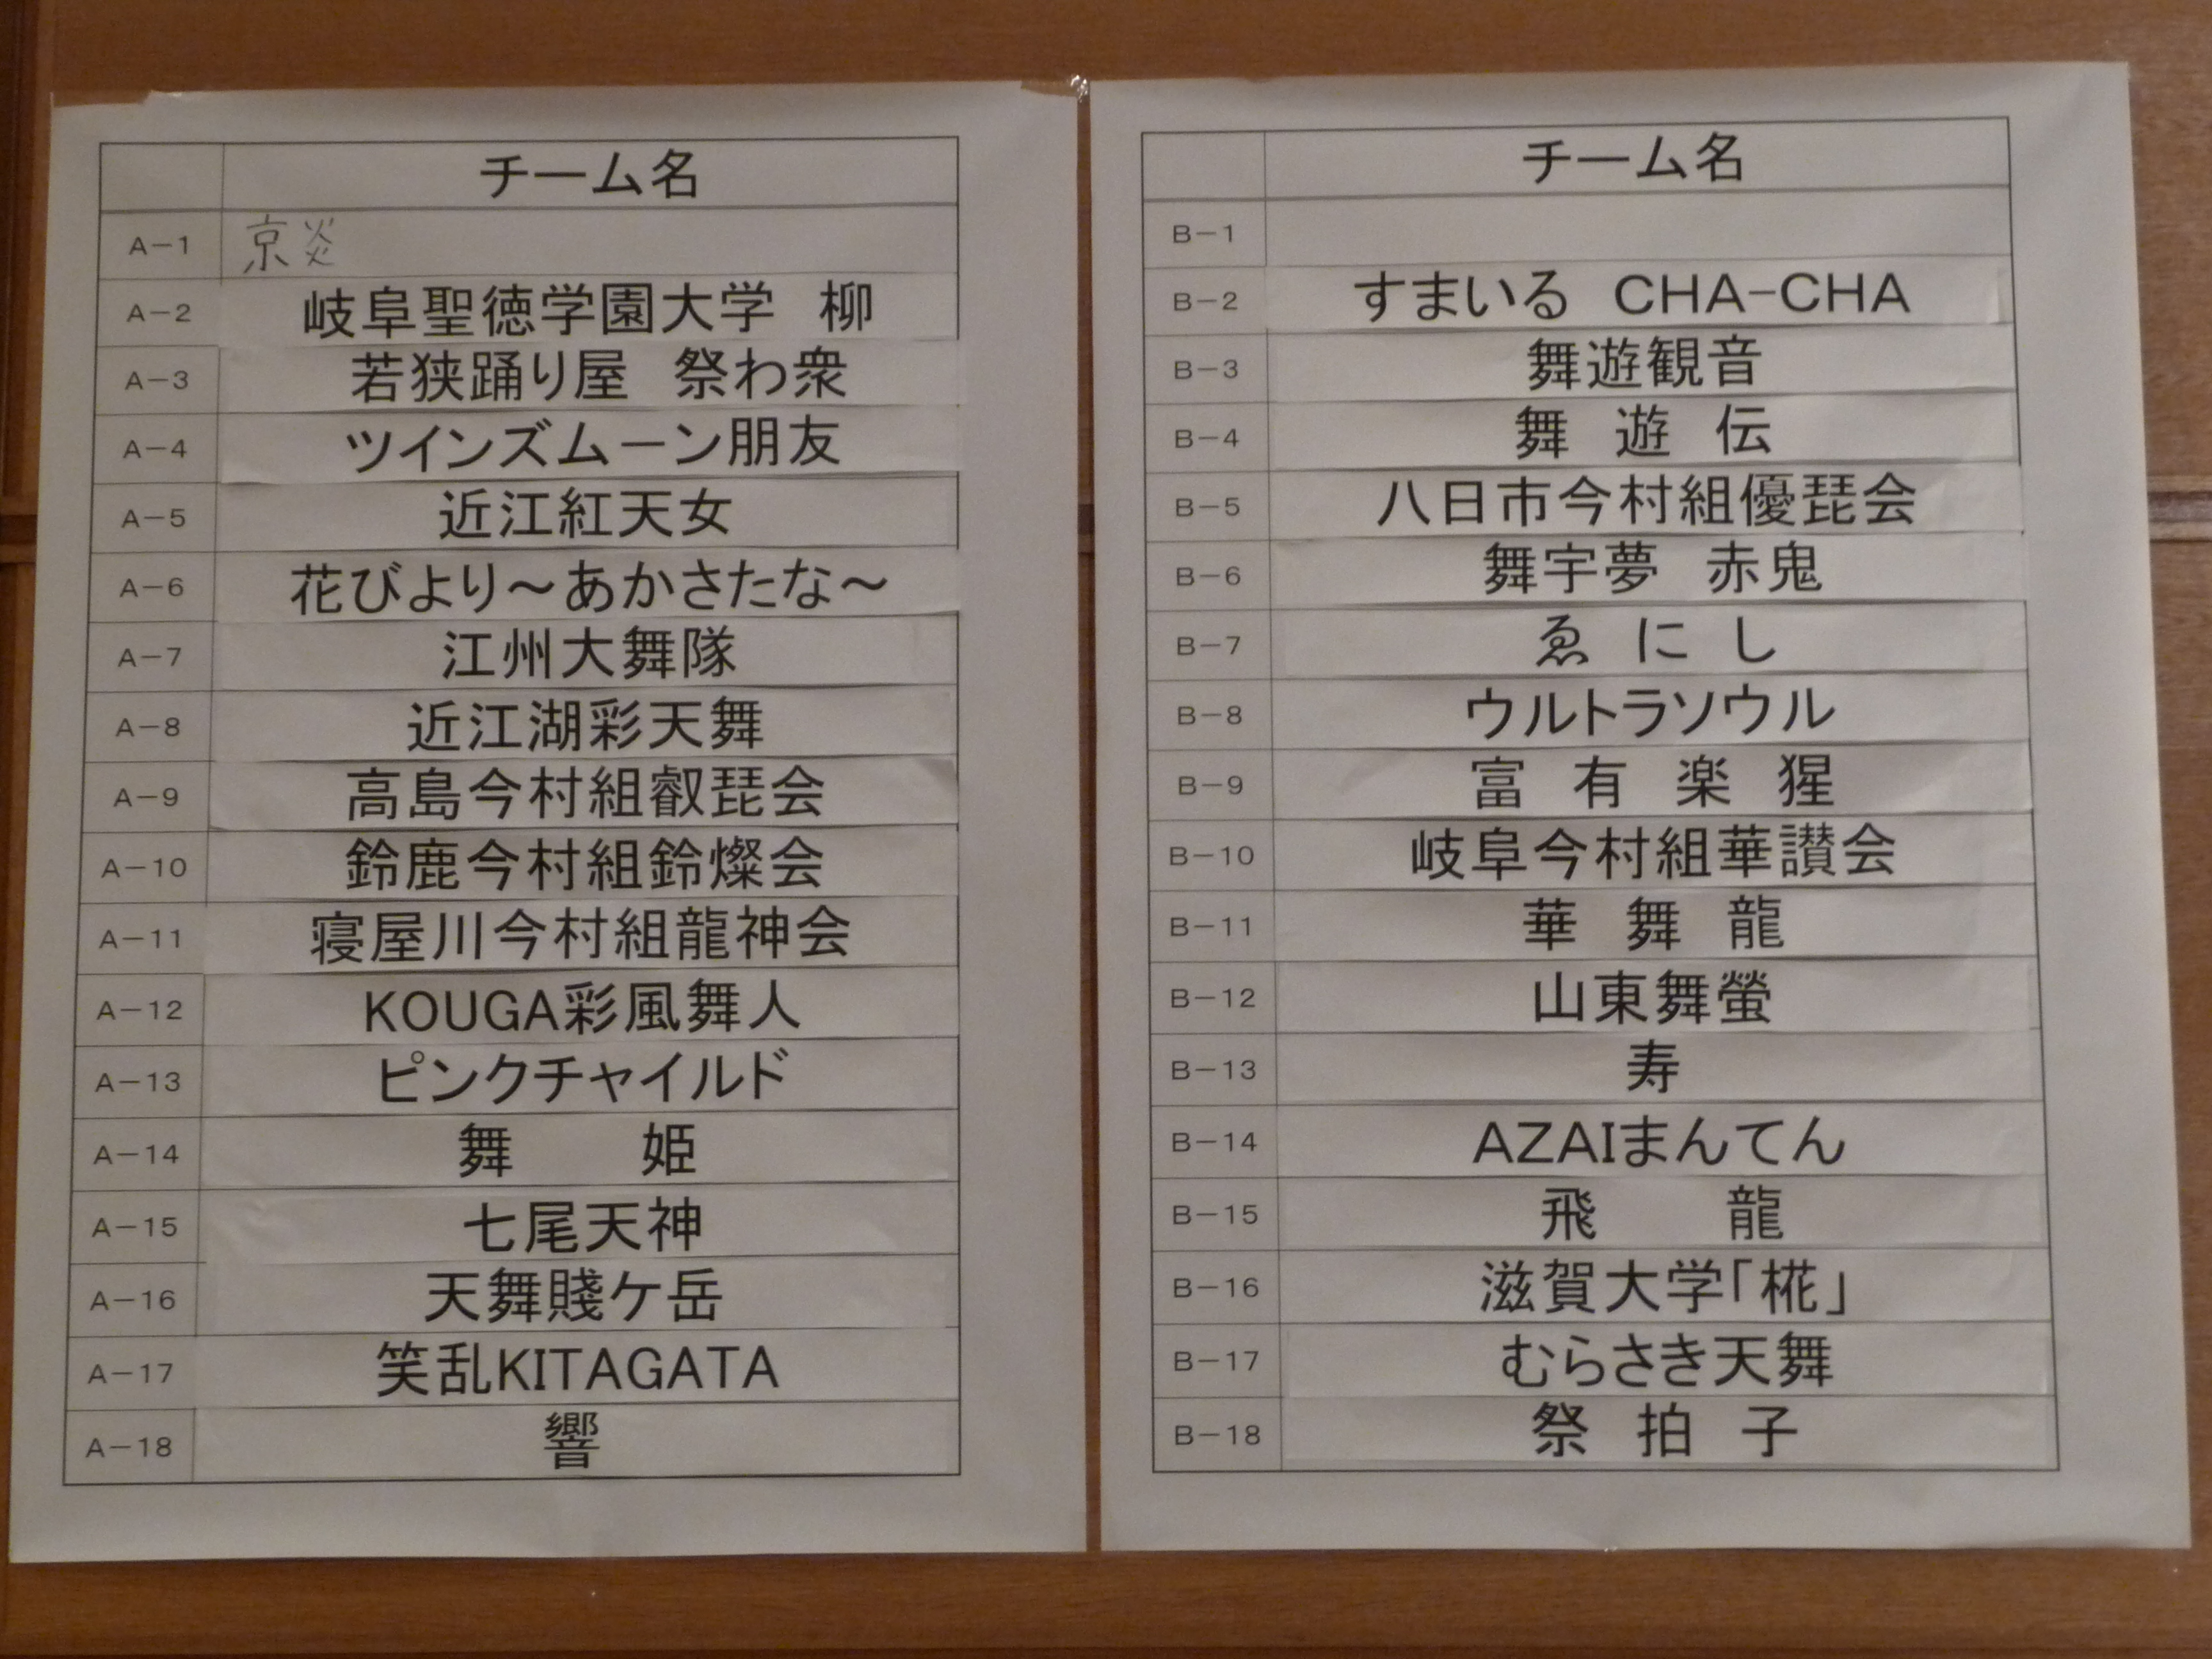 チーム名
A－1 京炎
A－2 岐阜聖徳学園大学　柳
A－3 若狭踊り屋　祭わ衆
A－4 ツインズムーン朋友
A－5 近江紅天女
A－6 花びより～あかさたな～
A－7 江州大舞隊
A－8 近江湖彩天舞
A－9 高島今村組叡琵会
A－10 鈴鹿今村組鈴燦会
A－11 寝屋川今村組龍神会
A－12 KOUGA彩風舞人
A－13 ピンクチャイルド
A－14 舞　　姫
A－15 七尾天神
A－16 天舞賤ケ岳
A－17 笑乱KITAGATA
A－18 響
チーム名
B－1
B－2 すまいる　CHA-CHA
B－3 舞遊観音
B－4 舞　遊　伝
B－5 八日市今村組優琵会
B－6 舞宇夢　赤鬼
B－7 ゑ　に　し
B－8 ウルトラソウル
B－9 富　有　楽　猩
B－10 岐阜今村組華讃会
B－11 華　舞　龍
B－12 山東舞螢
B－13 寿
B－14 AZAIまんてん
B－15 飛　　龍
B－16 滋賀大学「椛」
B－17 むらさき天舞
B－18 祭　拍　子